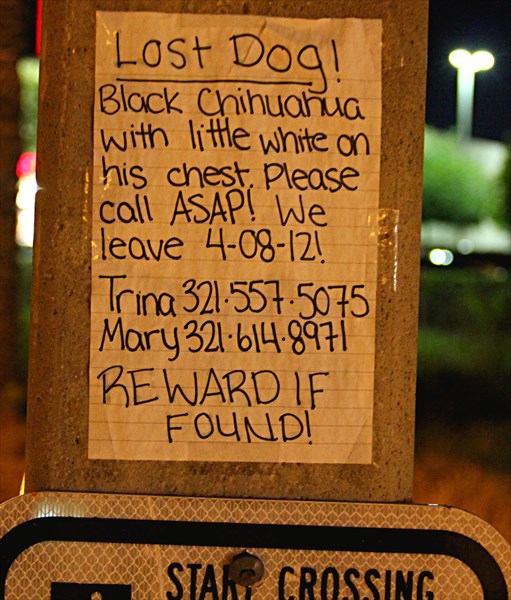 Lost Dog!
Black Chihuahua
with little white on
his chest. Please
call ASAP! We
leave 4-08-12!
Trina 321.557.5075
Mary 321.614.8971
REWARD IF
FOUND!
START CROSSING